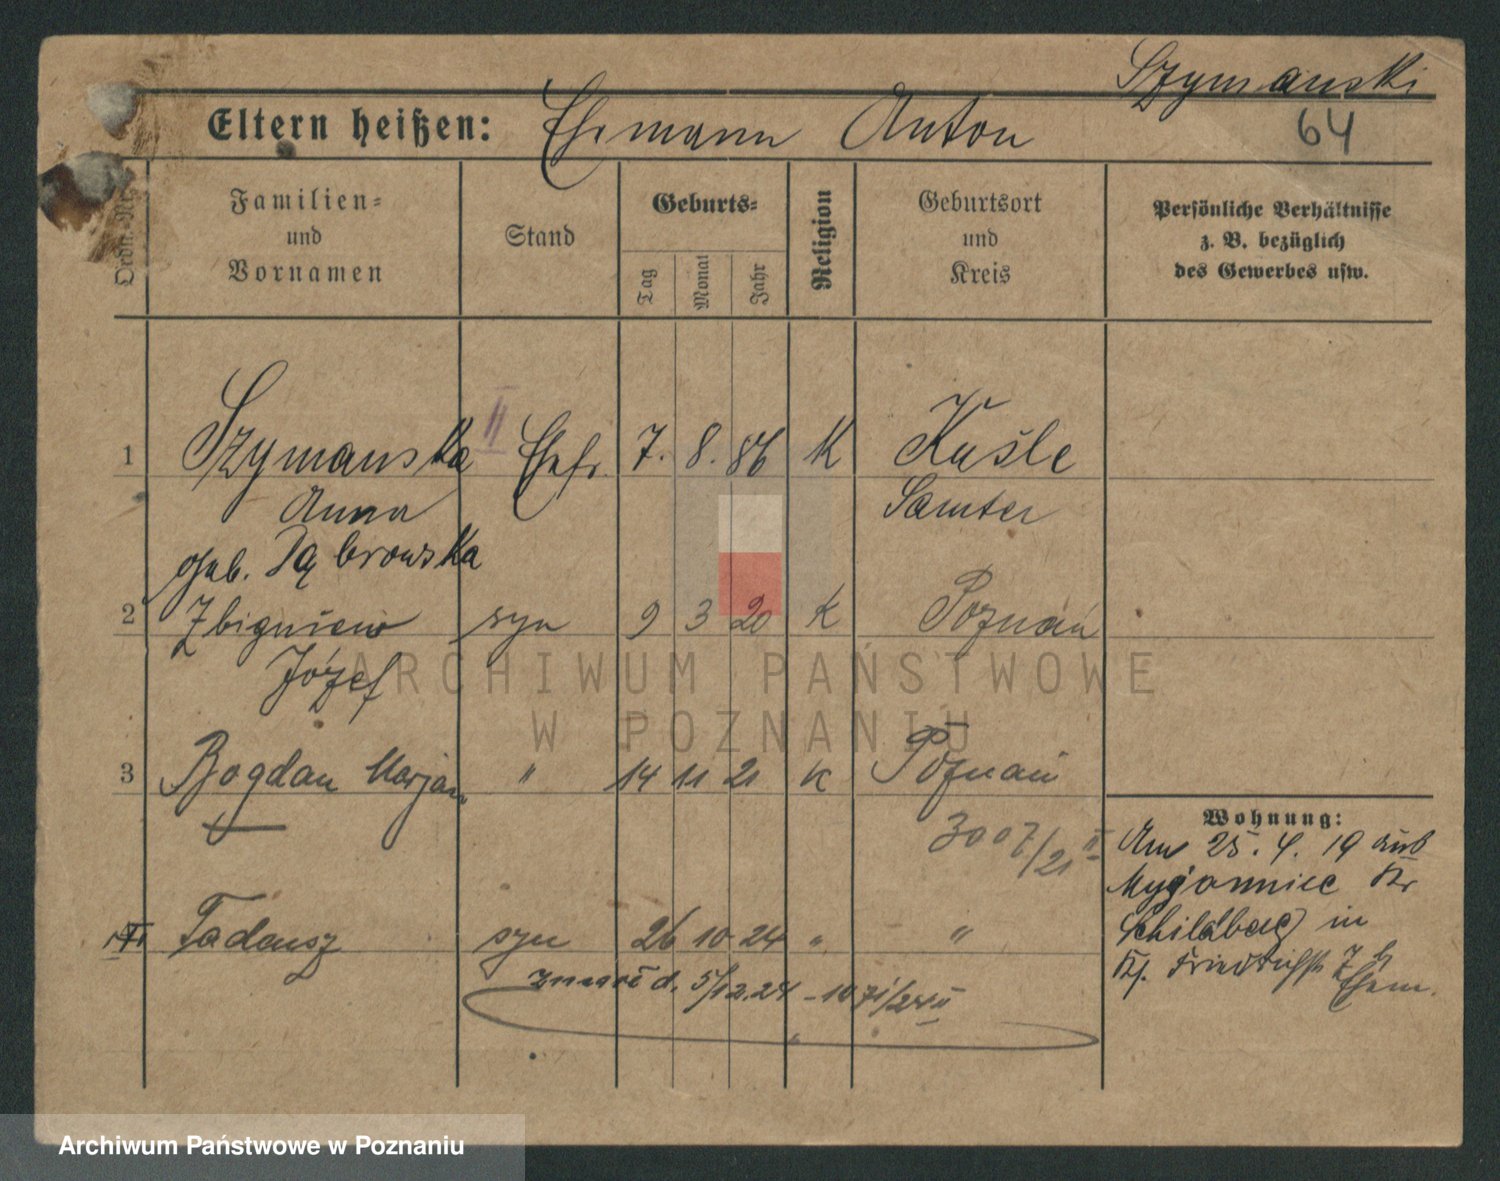 Szymanski
Eltern heißen: Ehemann Anton
64
Ordn.-Nr.
Familien=
und
Vornamen
Stand
Geburts=
Tag
Monat
Jahr
Religion
Geburtsort
und
Kreis
Persönliche Verhältnisse
z. B. bezüglich
des Gewerbes usw.
II
1 Szymanska Ehefr. 7. 8. 86 K Kuśle
Anna Samter
geb. Dąbrowska
2 Zbigniew syn 9 3 20 K Poznań
Józef
3 Bogdan Marjan " 14 11 21 K Poznań
3007/21 II
Tadeusz syn 26 10 24 " "
zmarł d. 5/12.24 - 1071/24 II
Wohnung:
Am 25. 4. 19 aus
Kr
Schildberg in
Ehem.
ARCHIWUM PAŃSTWOWE
W POZNANIU
Archiwum Państwowe w Poznaniu